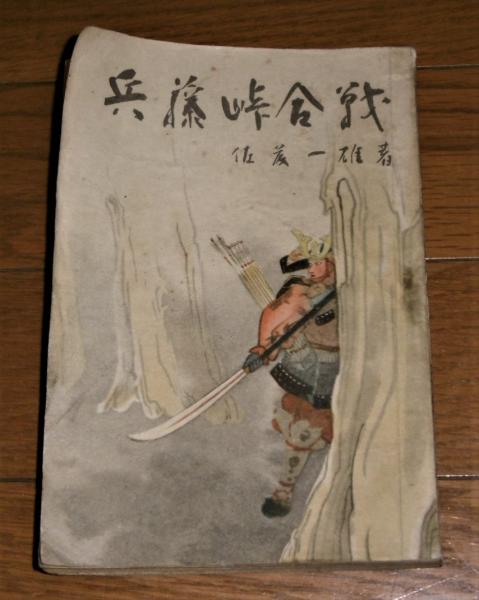 兵藤峠合戦
佐藤一雄著